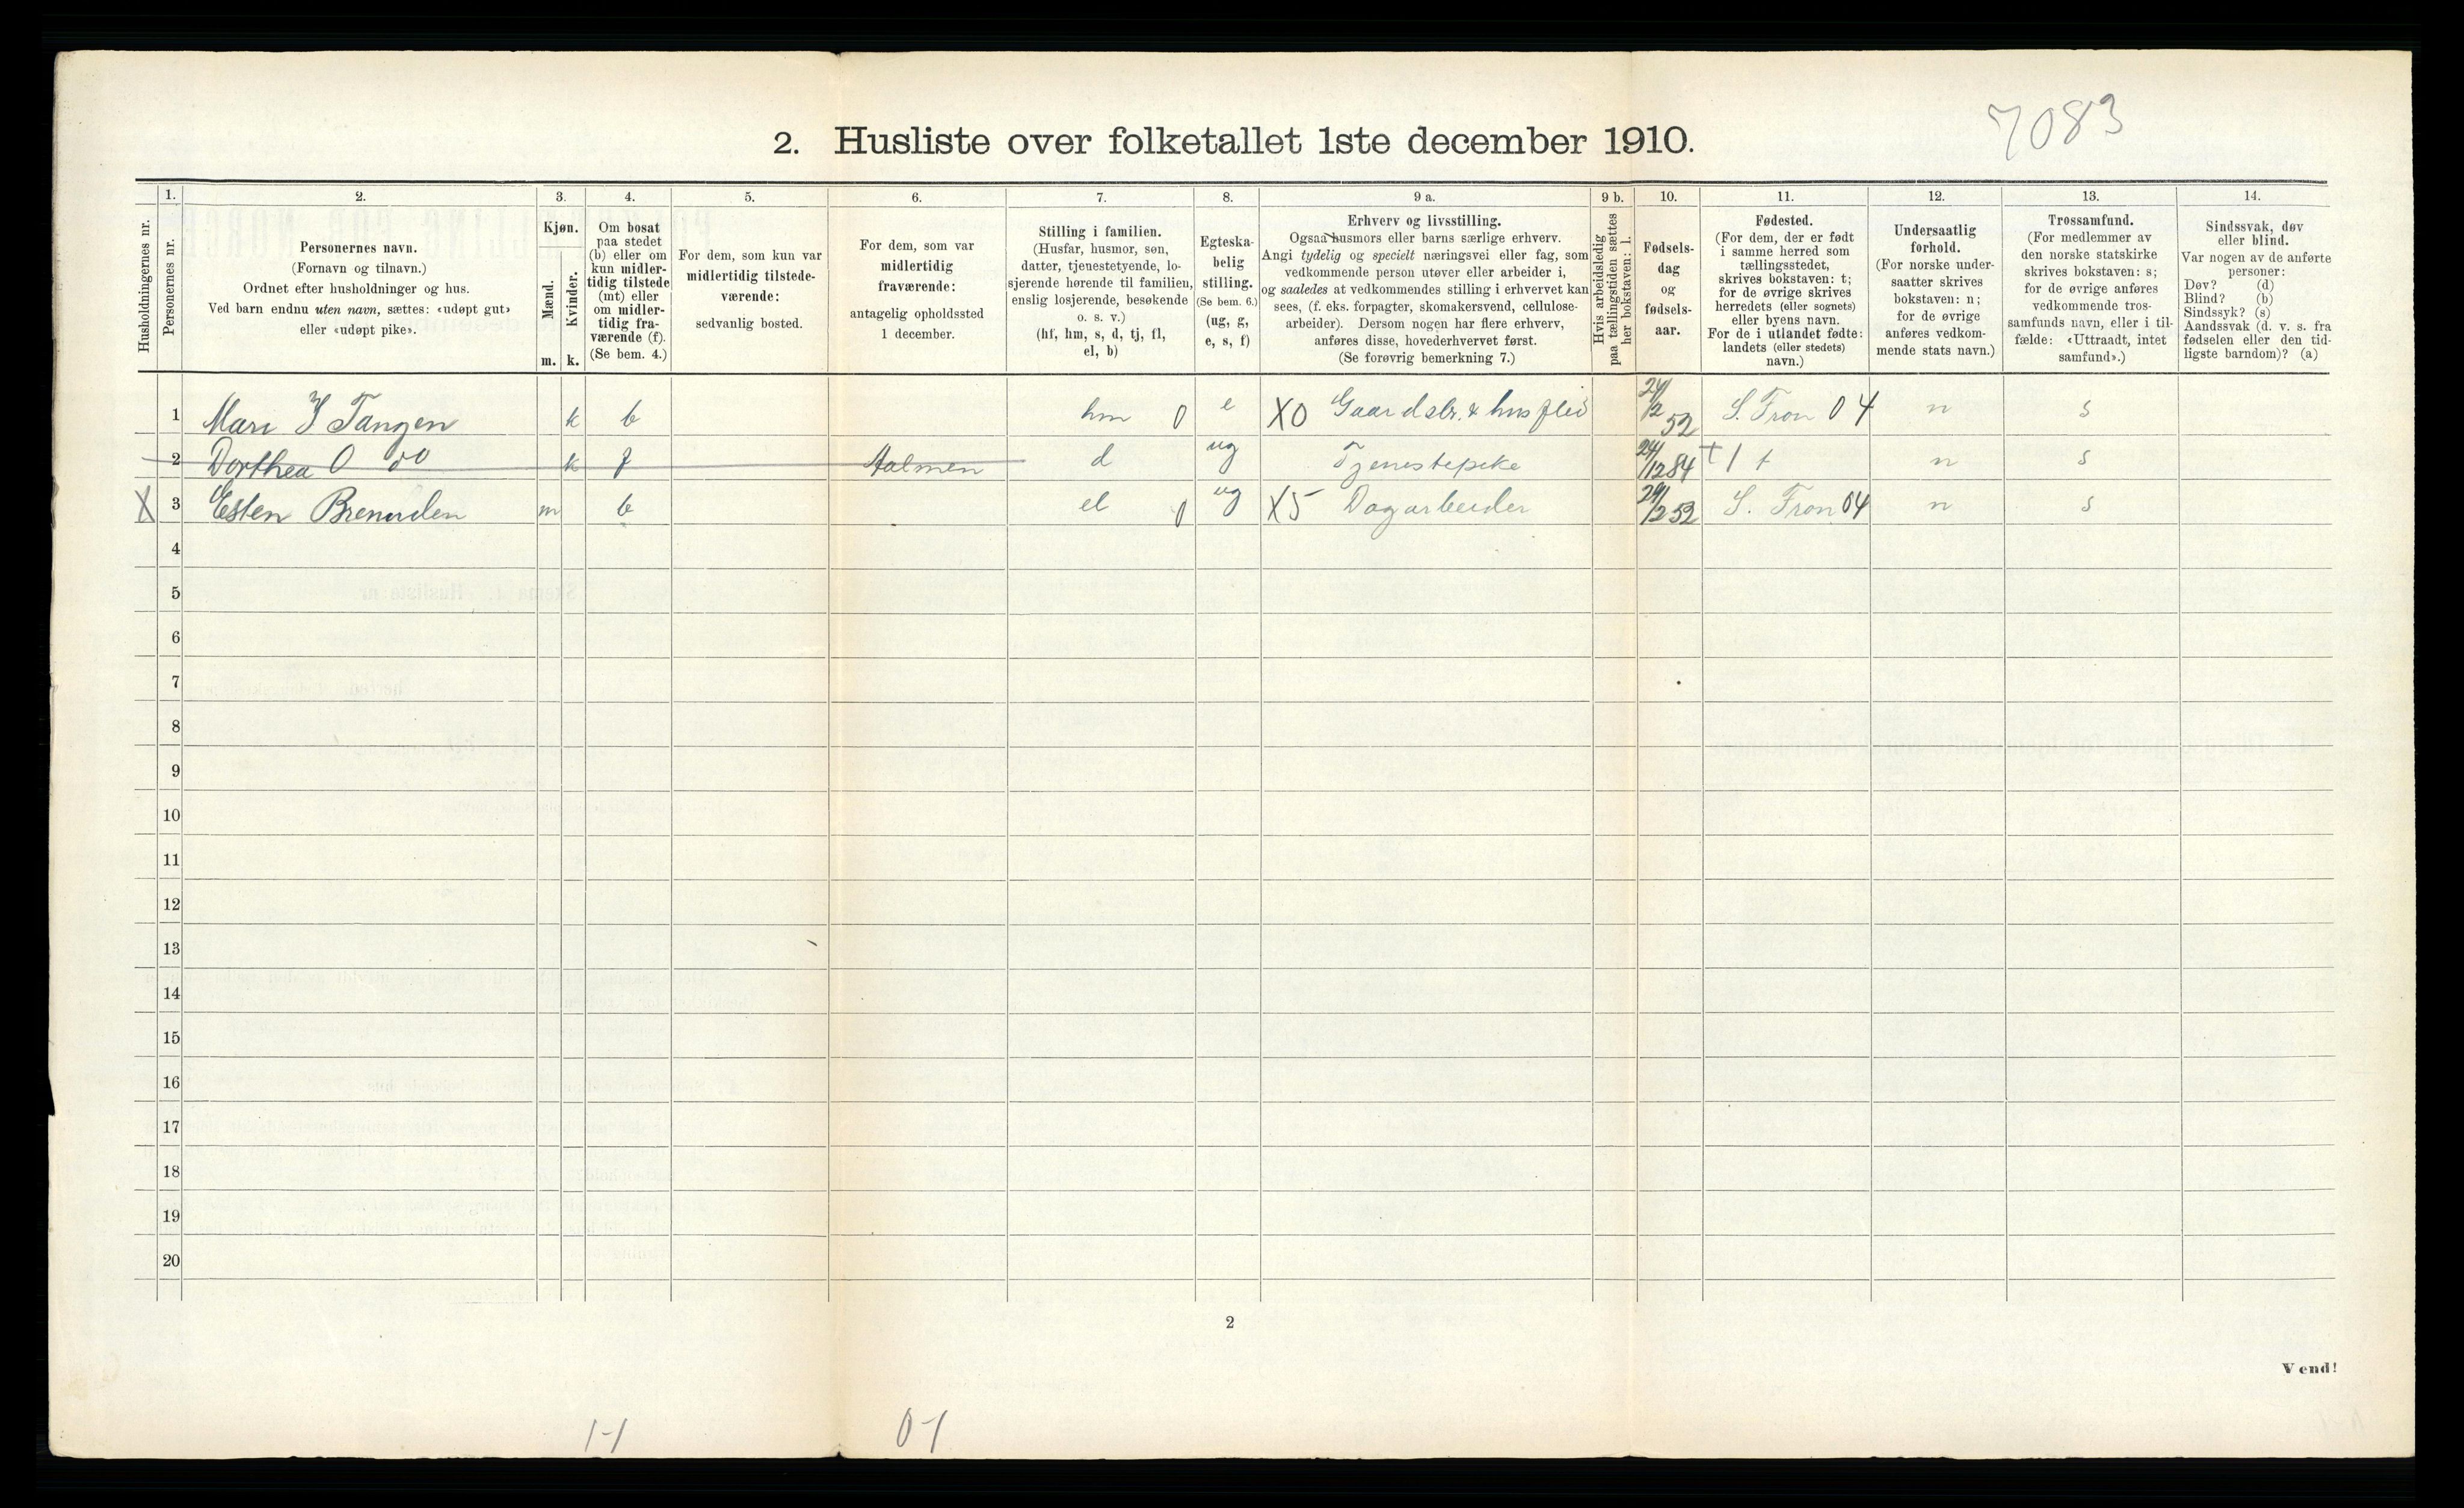 7083
2. Husliste over folketallet 1ste december 1910.
Husholdningernes nr.
1.
Personernes nr.
2.
Personernes navn.
(Fornavn og tilnavn.)
Ordnet efter husholdninger og hus.
Ved barn endnu uten navn, sættes: «udøpt gut»
eller «udøpt pike».
3.
Kjøn.
Mænd.
Kvinder.
m. k.
4.
Om bosat
paa stedet
(b) eller om
kun midler-
tidig tilstede
(mt) eller
om midler-
tidig fra-
værende (f).
(Se bem. 4.)
5.
For dem, som kun var
midlertidig tilstede-
værende:
sedvanlig bosted.
6.
For dem, som var
midlertidig
fraværende:
antagelig opholdssted
1 december.
7.
Stilling i familien.
(Husfar, husmor, søn,
datter, tjenestetyende, lo-
sjerende hørende til familien,
enslig losjerende, besøkende
o. s. v.)
(hf, hm, s, d, tj, fl,
el, b)
8.
Egteska-
belig
stilling.
(Se bem. 6.)
(ug, g,
e, s, f)
9 a.
Erhverv og livsstilling.
Ogsaa husmors eller barns særlige erhverv.
Angi tydelig og specielt næringsvei eller fag, som
vedkommende person utøver eller arbeider i,
og saaledes at vedkommendes stilling i erhvervet kan
sees, (f. eks. forpagter, skomakersvend, cellulose-
arbeider). Dersom nogen har flere erhverv,
anføres disse, hovederhvervet først.
(Se forøvrig bemerkning 7.)
9 b.
Hvis arbeidsledig
paa tællingstiden sættes
her bokstaven: l.
10.
Fødsels-
dag
og
fødsels-
aar.
11.
Fødested.
(For dem, der er født
i samme herred som
tællingsstedet,
skrives bokstaven: t;
for de øvrige skrives
herredets (eller sognets)
eller byens navn.
For de i utlandet fødte:
landets (eller stedets)
navn.)
12.
Undersaatlig
forhold.
(For norske under-
saatter skrives
bokstaven: n;
for de øvrige
anføres vedkom-
mende stats navn.)
13.
Trossamfund.
(For medlemmer av
den norske statskirke
skrives bokstaven: s;
for de øvrige anføres
vedkommende tros-
samfunds navn, eller i til-
fælde: «Uttraadt, intet
samfund».)
14.
Sindssvak, døv
eller blind.
Var nogen av de anførte
personer:
Døv? (d)
Blind? (b)
Sindssyk? (s)
Aandssvak (d. v. s. fra
fødselen eller den tid-
ligste barndom)? (a)
1 Mari I Tangen k b hm 0 e X0 Gaardsbr. & husflid 24/2 52 S. Fron 04 n s
2 Dorthea O do k f Aalmen d ug Tjenestepike 24/12 84 t n s
X 3 Esten Brenuden m b el 0 ug X5 Dagarbeider 29/2 52 S. Fron 04 n s
4
5
6
7
8
9
10
11
12
13
14
15
16
17
18
19
20
2
Vend!
1-1 0-1